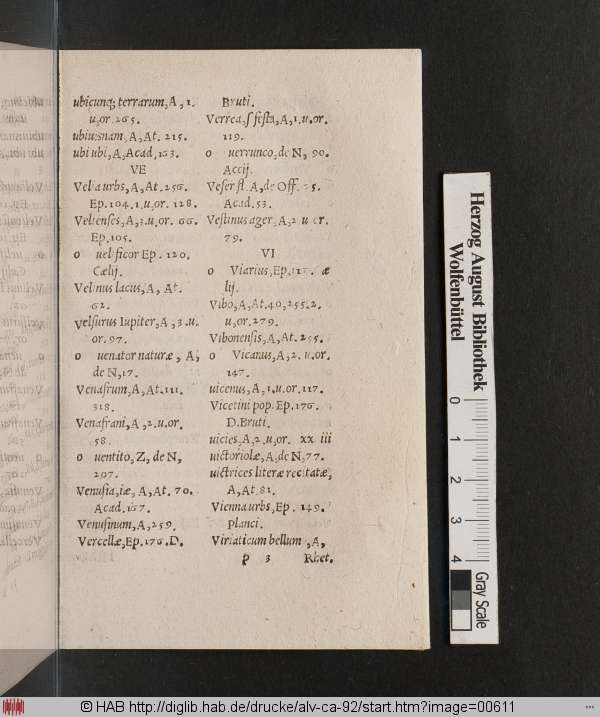 ubicunq; terrarum, A, 1.
u, or. 265.
ubiuisnam, A, At. 215.
ubi ubi, A, Acad. 163.
VE
Velia urbs, A, At. 256.
Ep. 104. 1. u. or. 128.
Velienses, A, 3. u. or. 66.
Ep. 105.
o uelificor Ep. 120.
Cælij.
Velinus lacus, A, At.
62.
Velsurus Iupiter, A, 3. u.
or. 97.
o uenator naturæ, A,
de N, 17.
Venafrum, A, At. 111.
318.
Venafrani, A, 2. u. or.
58.
o uentito, Z, de N,
207.
Venusia, iæ, A, At. 70.
Acad. 167.
Venusinum, A, 259.
Vercellæ, Ep. 176. D.
Bruti.
Verrea, ſ festa, A, 1. u. or.
119.
o uerrunco, de N, 90.
Accij.
A, de Off.
Acad. 53.
Vestinus ager, A, 2. u. or.
79.
VI
o Viarius, Ep. æ
lij.
Vibo, A, At. 40, 255. 2.
u, or. 279.
Vibonensis, A, At. 255.
o Vicanus, A, 2. u. or.
147.
uicenus, A, 1. u. or. 117.
Vicetini pop. Ep. 176.
D. Bruti.
uicies, A, 2. u, or. xx iii
uictoriolæ, A, de N, 77.
uictrices literæ recitatæ,
A, At. 81.
Vienna urbs, Ep. 149.
Planci.
Viriaticum bellum, A,
p 3 Rhet.
Herzog August Bibliothek
Wolfenbüttel
0 1 2 3 4
Gray Scale
© HAB http://diglib.hab.de/drucke/alv-ca-92/start.htm?image=00611